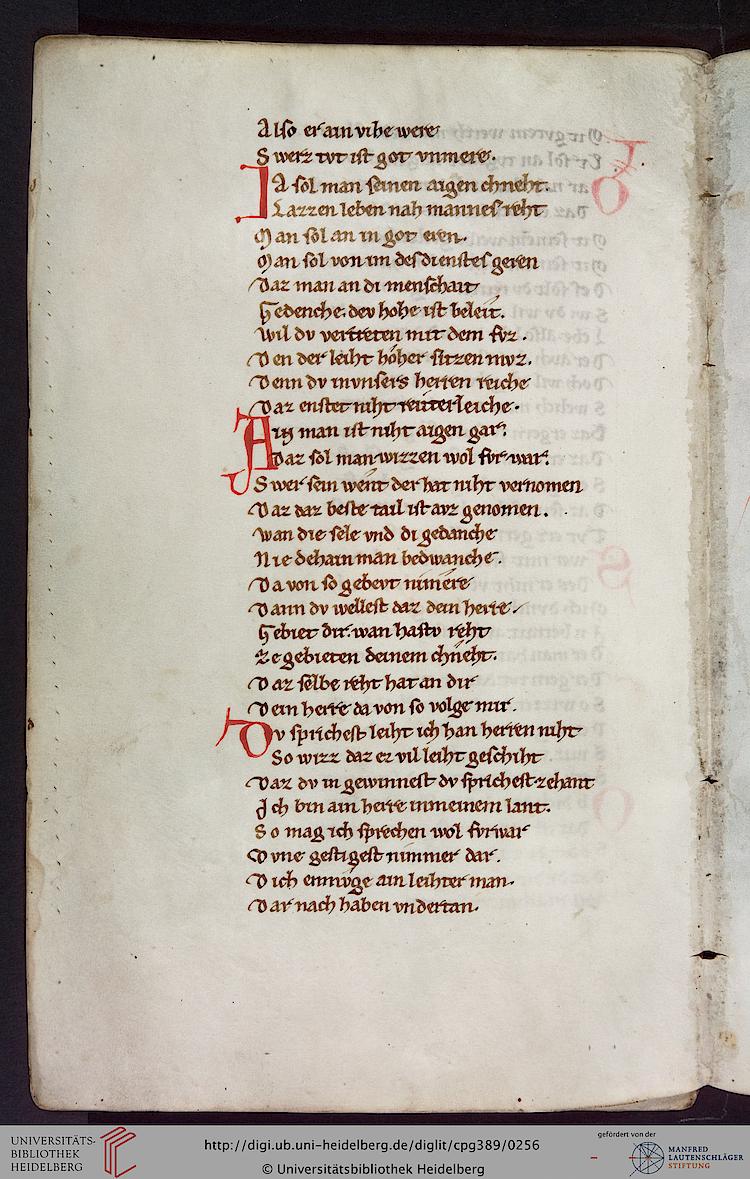 Also er ain vihe were
Swerz tvt ist got vnmere.
Ja sol man seinen aigen chneht.
Lazzen leben nah mannes reht
Man sol an in got eren.
Man sol von im des dienstes geren
Daz man an di menschait
Gedenche. dev hohe ist beleit.
Wil dv vertreten mit dem fvz.
Den der leiht hoͤher sitzen mvz.
Denn dv in vnsers herren reiche
Daz enstet niht reuterleiche.
Ain man ist niht aigen gar.
Daz sol man wizzen wol fvr war.
Swer sein went der hat niht vernomen
Daz daz beste tail ist avz genomen.
wan die sele vnd di gedanche
Nie dehain man bedwanche.
Da von so gebevt nimere
Dann dv wellest daz dein herre.
Gebiet dir. wan hastv reht
Ze gebieten deinem chneht.
Daz selbe reht hat an dir
Dein herre da von so volge mir.
Dv sprichest leiht ich han herren niht
So wizz daz ez vil leiht geschiht
Daz dv in gewinnest dv sprichest zehant
Ich bin ain herre in meinem lant.
So mag ich sprechen wol fvrwar
Dvne gestigest nimmer dar.
Dich enmvͤge ain leihter man.
Dar nach haben vndertan.
UNIVERSITÄTS-
BIBLIOTHEK
HEIDELBERG
http://digi.ub.uni-heidelberg.de/diglit/cpg389/0256
© Universitätsbibliothek Heidelberg
gefördert von der
MANFRED
LAUTENSCHLÄGER
STIFTUNG